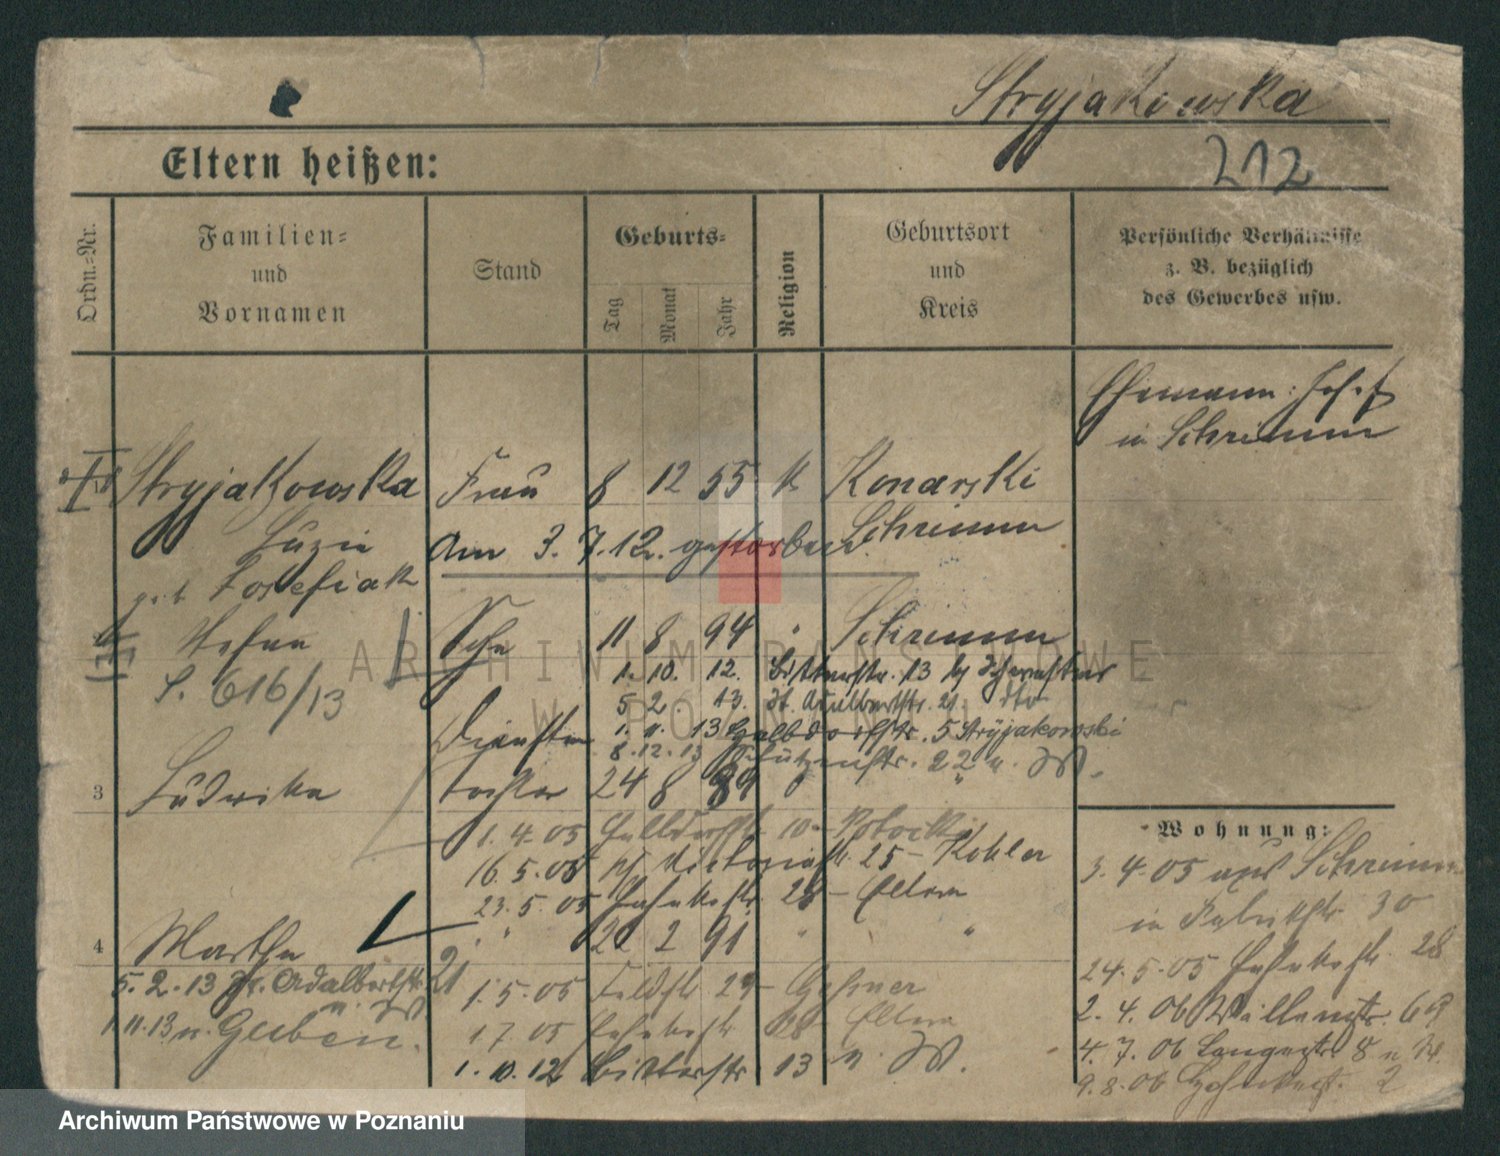 Stryjakowska
212
Eltern heißen:
Ordn.-Nr.
Familien- und Vornamen
Stand
Geburts-
Tag
Monat
Jahr
Religion
Geburtsort und Kreis
Persönliche Verhältnisse
z. B. bezüglich
des Gewerbes usw.
Ehemann: Josef
in Schrimm
Stryjakowska Frau 8 12 55 k Konarski
Luzie
Schrimm
am 3. 7. 12. gestorben
geb Josefiak
Stefan Sohn 11 8 94 " Schrimm
S. 616/13
1. 10. 12. Bitterstr. 13
5 2. 13. St. Adalbertstr. 21. dto
Dienstm
1. 11. 13 Halbdorfstr. 5 Stryjakowski
8. 12. 13 Schützenstr. 22 n. W.
3 Ludwika Tochter 24 8 89 " "
1. 4. 05 Halbdorfstr 10 - Potocki
16. 5. 05 Victoriastr. 25 - Kohler
23. 5. 05 28 - Eltern
4 Martha " " 22 2 91 " "
5. 2. 13 St. Adalbertstr. 21
n. W
1. 11. 13 n. Guben.
1. 5. 05 Feldstr 29 -
1 7 05 28 Eltern
1. 10. 12 Bitterstr 13 n. W.
Wohnung:
3. 4. 05 aus Schrimm
in Fabrikstr. 30
24. 5. 05 28
2. 4. 06 Wallenstr. 69
4. 7. 06 Langestr 8
9. 8. 06 2
ARCHIWUM PAŃSTWOWE
W POZNANIU
Archiwum Państwowe w Poznaniu